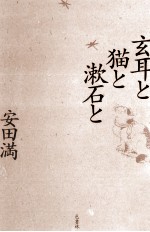 玄耳と
猫と
漱石と
安田満